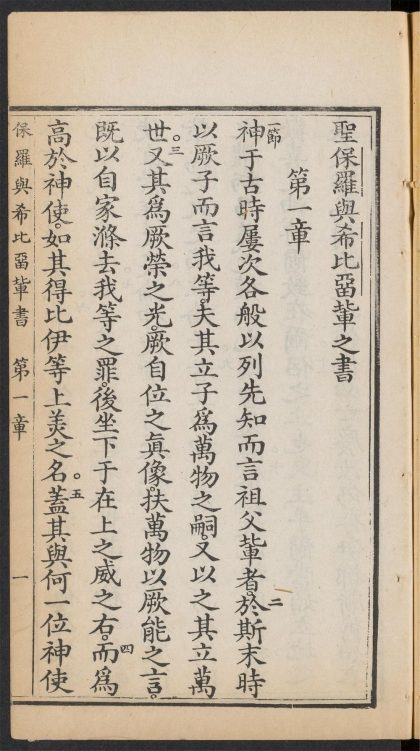 聖保羅與希比畱輩之書
第一章
一節神于古時屢次各般以列先知而言祖父輩者。二於斯末時
以厥子而言我等。夫其立子為萬物之嗣。又以之其立萬
世。三又其為厥榮之光。厥自位之真像。扶萬物以厥能之言。
既以自家滌去我等之罪。後坐下于在上之威之右。四而為
高於神使。如其得比伊等上美之名。五蓋其與何一位神使
保羅與希比畱輩書 第一章 一